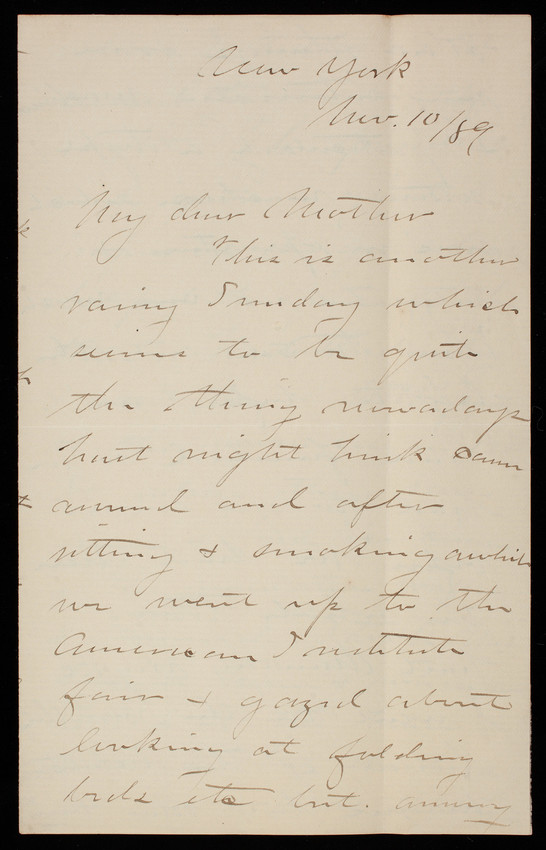 New York
Nov. 10/89
My dear Mother
This is another
rainy Sunday which
seems to be quite
the thing nowadays
last night Link came
around and after
sitting & smoking awhile
we went up to the
American Institute
fair & gazed about
looking at folding
beds etc but among